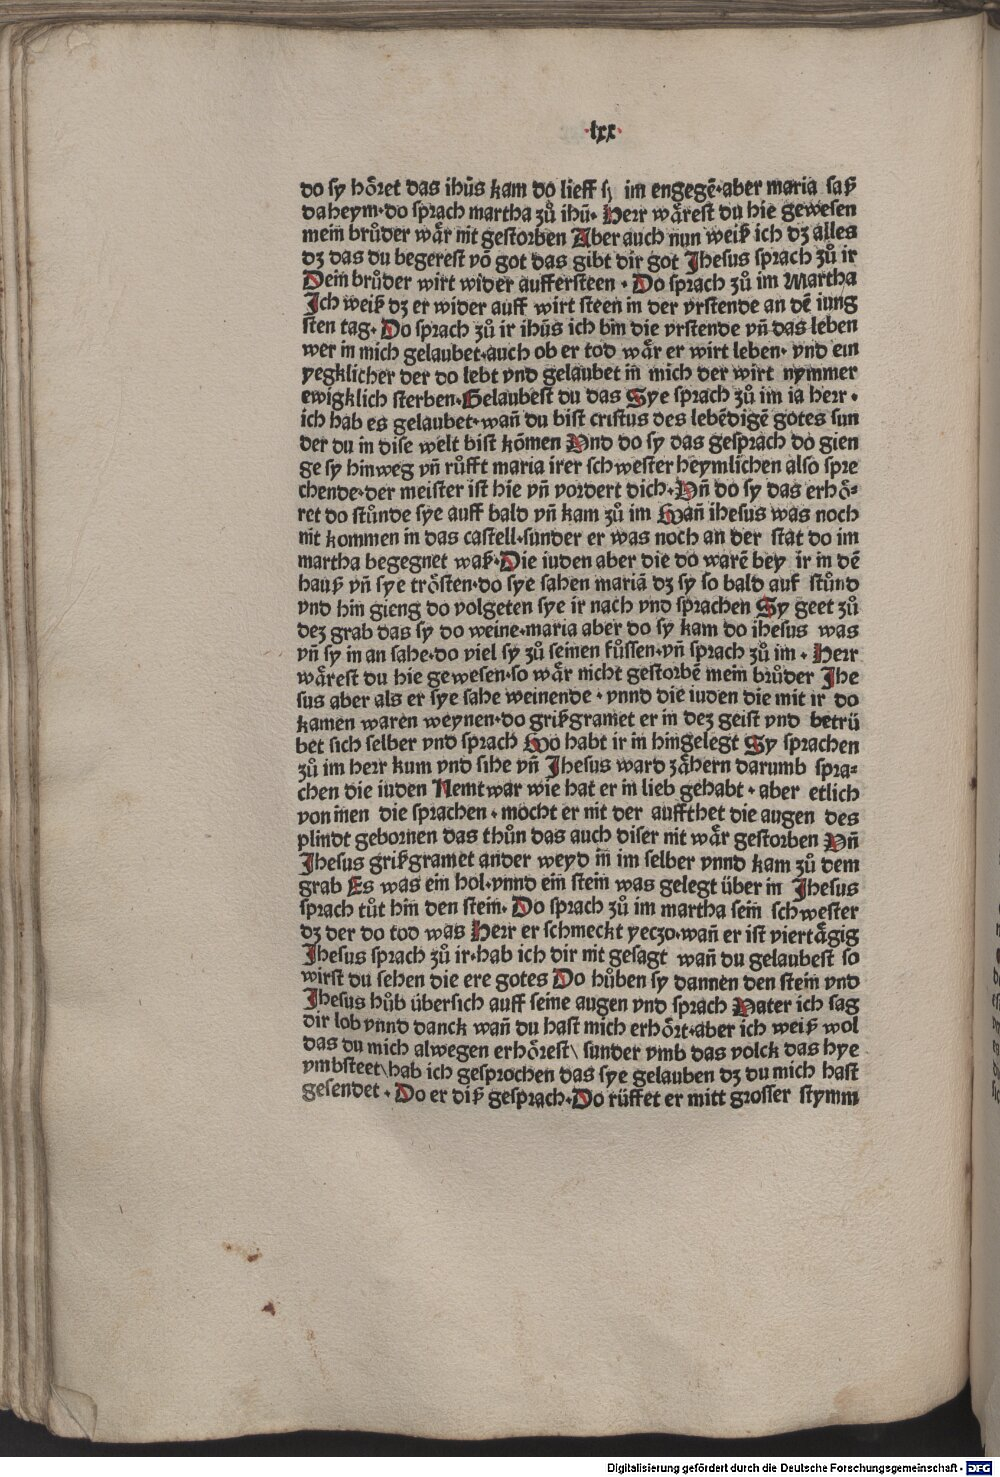 ·lxx·
do sy hoͤret das ihūs kam do lieff sy im engegē·aber maria saß
daheym·do sprach martha zuͦ ihū· Herr waͤrest du hie gewesen
mein bruͦder waͤr nit gestorben Aber auch nun weiß ich dz alles
dz das du begerest vō got das gibt dir got Jhesus sprach zuͦ ir
Dein bruͦder wirt wider aufferſteen · Do sprach zuͦ im Martha
Jch weiß dz er wider auff wirt steen in der vrstende an dē iung
sten tag· Do sprach zuͦ ir ihūs ich bin die vrstende vn̄ das leben
wer in mich gelaubet·auch ob er tod waͤr er wirt leben· vnd ein
yegklicher der do lebt vnd gelaubet in mich der wirt nymmer
ewigklich sterben·Gelaubest du das Sye sprach zuͦ im ia herr ·
ich hab es gelaubet·wan̄ du bist cristus des lebēdigē gotes sun
der du in dise welt bist kōmen Vnd do sy das gesprach do gien
ge sy hinweg vn̄ ruͦfft maria irer schwester heymlichen also spre
chende·der meister ist hie vn̄ vordert dich·Vn̄ do sy das erhoͤ⸗
ret do stuͦnde sye auff bald vn̄ kam zuͦ im Wan̄ ihesus was noch
nit kommen in das castell·sunder er was noch an der stat do im
martha begegnet waß·Die iuden aber die do warē bey ir in dē
hauß vn̄ sye troͤsten·do sye sahen mariā dz sy so bald auf stuͦnd
vnd hin gieng do volgeten sye ir nach vnd sprachen Sy geet zuͦ
dez grab das sy do weine·maria aber do sy kam do ihesus was
vn̄ sy in an sahe·do viel sy zuͦ seinen fuͤssen·vn̄ sprach zuͦ im · Herr
waͤrest du hie gewesen·so waͤr nicht gestorbē mein bruͦder Jhe
sus aber als er sye sahe weinende · vnnd die iuden die mit ir do
kamen waren weynen·do grißgramet er in dez geist vnd betrü
bet sich selber vnd sprach Wo habt ir in hingelegt Sy sprachen
zuͦ im herr kum vnd sihe vn̄ Jhesus ward zaͤhern darumb spra⸗
chen die iuden Nemt war wie hat er in lieb gehabt · aber etlich
von inen die sprachen · mocht er nit der auffthet die augen des
plindt gebornen das thuͦn das auch diser nit waͤr gestorben Vn̄
Jhesus grißgramet ander weyd in im selber vnnd kam zuͦ dem
grab Es was ein hol·vnnd ein stein was gelegt über in Jhesus
sprach tuͦt hin den stein· Do sprach zuͦ im martha sein schwester
dz der do tod was Herr er schmeckt yeczo·wan̄ er ist viertaͤgig
Jhesus sprach zuͦ ir·hab ich dir nit gesagt wan̄ du gelaubest so
wirst du sehen die ere gotes Do huͦben sy dannen den stein vnd
Jhesus huͦb übersich auff seine augen vnd sprach Vater ich sag
dir lob vnnd danck wan̄ du hast mich erhoͤrt·aber ich weiß wol
das du mich alwegen erhoͤrest/ sunder vmb das volck das hye
vmbsteet/hab ich gesprochen das sye gelauben dz du mich hast
gesendet · Do er diß gesprach·Do rüffet er mitt grosser stymm
Digitalisierung gefördert durch die Deutsche Forschungsgemeinschaft - DFG